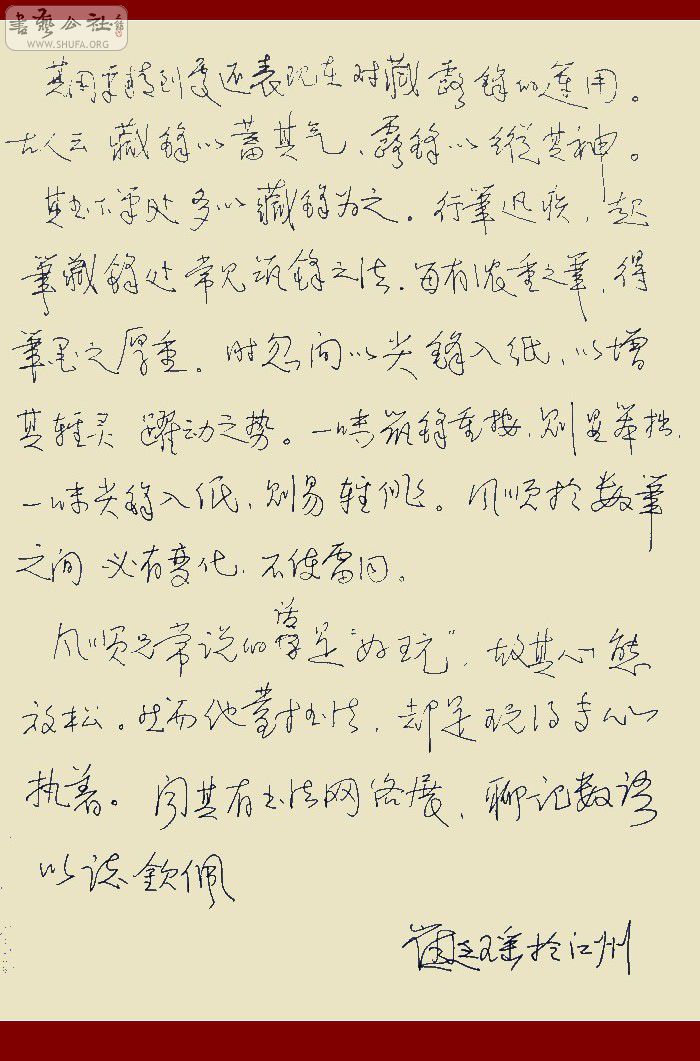 書藝公社
WWW.SHUFA.ORG
其用笔精到处还表现在对藏露锋的运用。
古人云藏锋以蓄其气，露锋以纵其神。
其书下笔处多以藏锋为之。行笔迅疾，起
笔藏锋处常见筑锋之法，每有浓重之笔，得
笔墨之厚重。时忽间以尖锋入纸，以增
其轻灵跃动之势。一味筑锋重按，则显笨拙，
一味尖锋入纸，则易轻佻。风顺于数笔
之间必有变化，不使雷同。
风顺兄常说的话是“好玩”，故其心态
放松。然而他对书法，却是玩得专心
执着。闻其有书法网络展，聊记数语
以誌钦佩
于江州